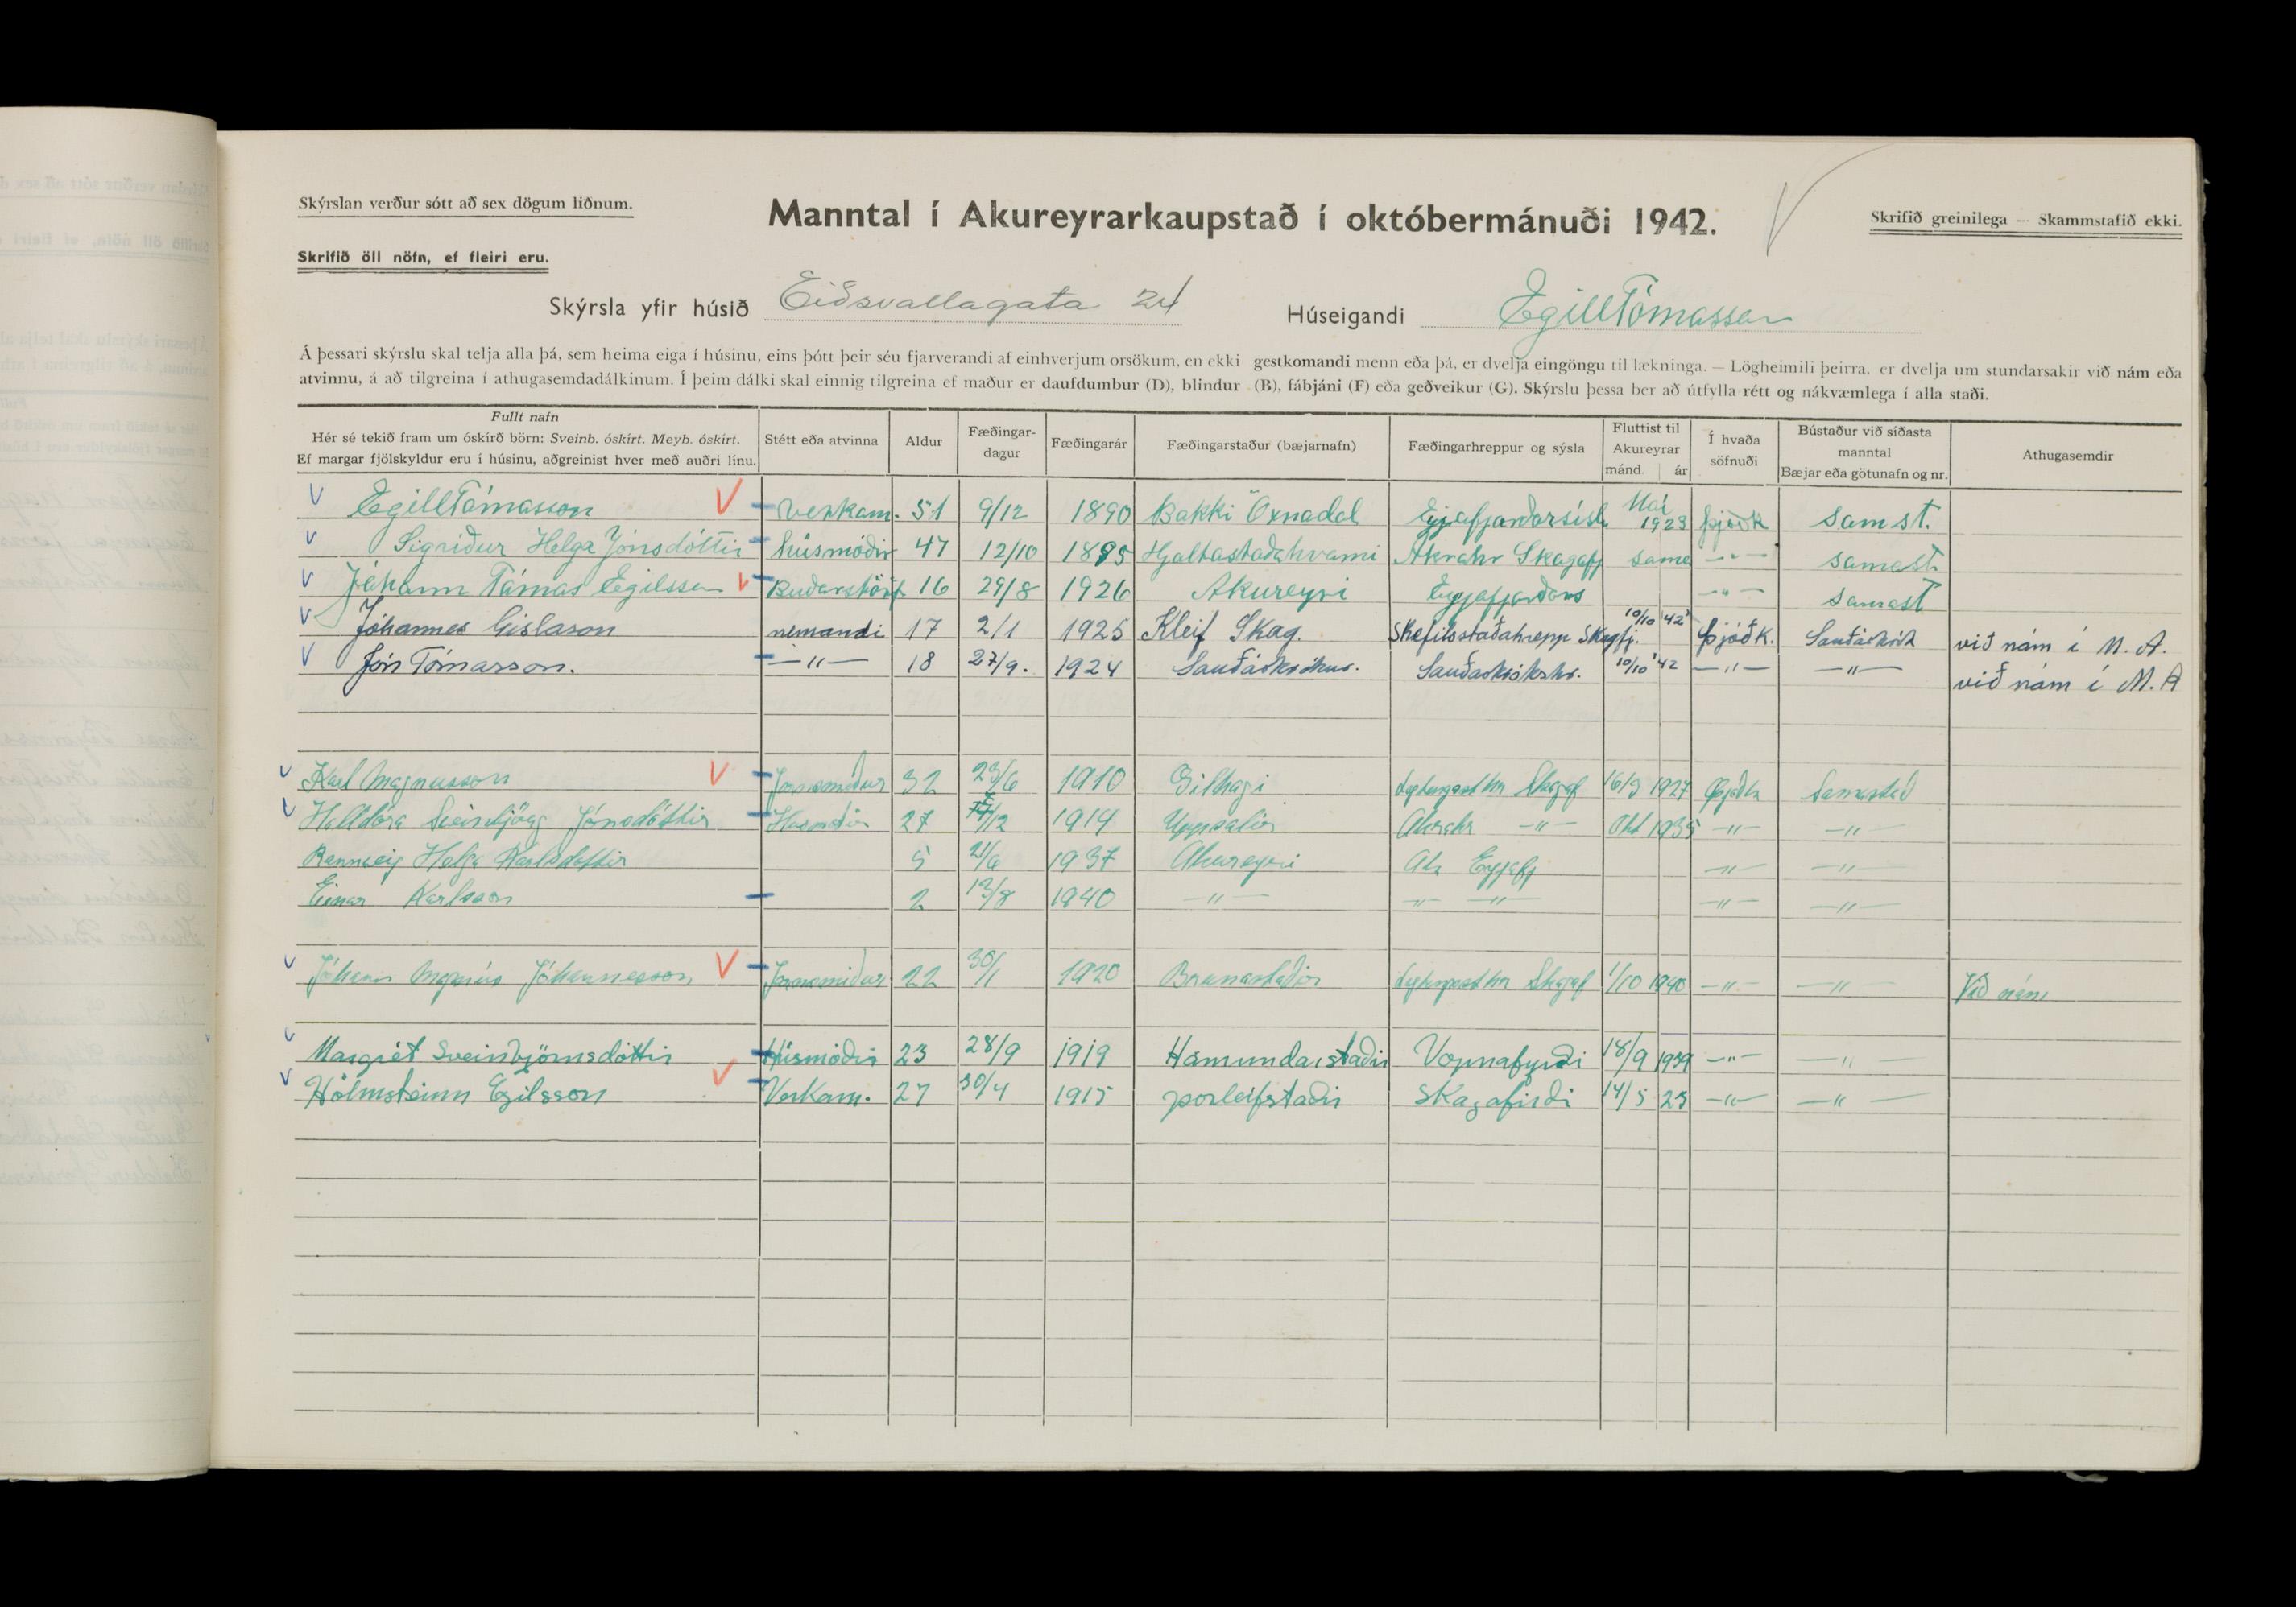 Skýrslan verður sótt að sex dögum liðnum.
Manntal í Akureyrarkaupstað í októbermánuði 1942.
Skrifið greinilega — Skammstafið ekki.
Skrifið öll nöfn, ef fleiri eru.
Skýrsla yfir húsið Eiðsvallagata 24 Húseigandi Egill Tómasson
Á þessari skýrslu skal telja alla þá, sem heima eiga í húsinu, eins þótt þeir séu fjarverandi af einhverjum orsökum, en ekki gestkomandi menn eða þá, er dvelja eingöngu til lækninga. — Lögheimili þeirra, er dvelja um stundarsakir við nám eða
atvinnu, á að tilgreina í athugasemdadálkinum. Í þeim dálki skal einnig tilgreina ef maður er daufdumbur (D), blindur (B), fábjáni (F) eða geðveikur (G). Skýrslu þessa ber að útfylla rétt og nákvæmlega í alla staði.
Fullt nafn
Hér sé tekið fram um óskírð börn: Sveinb. óskírt. Meyb. óskírt.
Ef margar fjölskyldur eru í húsinu, aðgreinist hver með auðri línu.
Stétt eða atvinna
Aldur
Fæðingar-
dagur
Fæðingarár
Fæðingarstaður (bæjarnafn)
Fæðingarhreppur og sýsla
Fluttist til
Akureyrar
mánd. ár
Í hvaða
söfnuði
Bústaður við síðasta
manntal
Bæjar eða götunafn og nr.
Athugasemdir
Egill Tómasson Verkam. 51 9/12 1890 Bakki Öxnadal Eyjafjarðarsísl Maí 1923 þjóðk samst.
Sigríður Helga Jónsdóttir húsmóðir 47 12/10 1895 Hjaltastaðahvammi Akrahr Skagafj sama —"— samast
Jóhann Tómas Egilsson Buðarstörf 16 29/8 1926 Akureyri Eyjafjarðars —"— samast
Jóhannes Gíslason nemandi 17 2/1 1925 Kleif Skag. Skefilsstaðahrepp Skagfj. 10/10 '42 Þjóðk. Sauðárkrók við nám í M. A.
Jón Tómasson. —"— 18 27/9. 1924 Sauðárkrókur. Sauðárkrókshr. 10/10 '42 —"— —"— við nám í M. A
Karl Magnusson Járnsmiður 32 23/6 1910 Gilhagi Lytingsst hr Skagaf 16/3 1927 Þjóðk Samastað
Halldóra Sveinbjörg Jónsdóttir 27 1914 Uppsalir Akrahr —"— Okt 1935 —"— —"—
Rannveig Helga Karlsdóttir 5 21/6 1937 Akureyri Ak Eyjafj —"— —"—
Einar Karlsson 2 12/8 1940 —"— —"— —"— —"— —"—
Jóhann Magnús Jóhannesson Járnsmiður 22 30/1 1920 Brenastaðir Lytingsst hr Skagaf 1/10 1940 —"— —"— Við nám
Margrét Sveinbjörnsdóttir Húsmóðir 23 28/9 1919 Hámundarstaðir Vopnafyrði 18/9 1939 —"— —"—
Hólmsteinn Egilsson Verkam. 27 30/4 1915 þorleifstaðir Skagafirði 14/5 23 —"— —"—